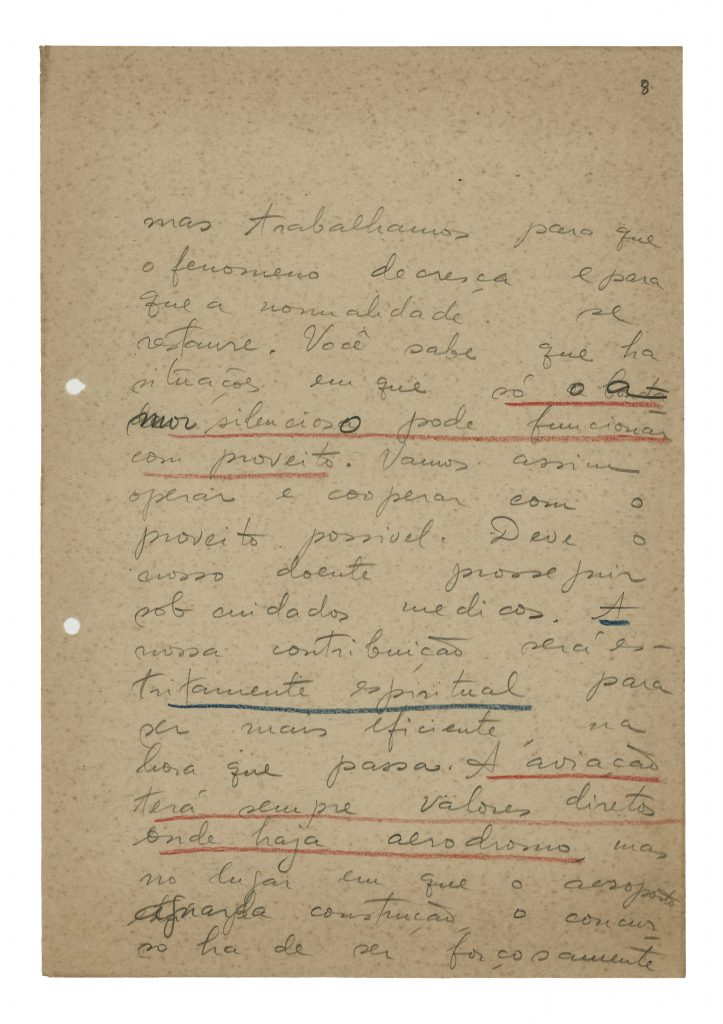 8
mas trabalhamos para que
o fenomeno decresça e para
que a normalidade se
restaure. Você sabe que ha
situações em que só o a-
mor silencioso pode funcionar
com proveito. Vamos assim
operar e cooperar com o
proveito possivel. Deve o
nosso doente prosseguir
sob cuidados medicos. A
nossa contribuição será es-
tritamente espiritual para
ser mais eficiente na
hora que passa. A aviação
terá sempre valores diretos
onde haja aerodromo, mas
no lugar em que o aeroporto
aguarda construção, o concur-
so ha de ser forçosamente